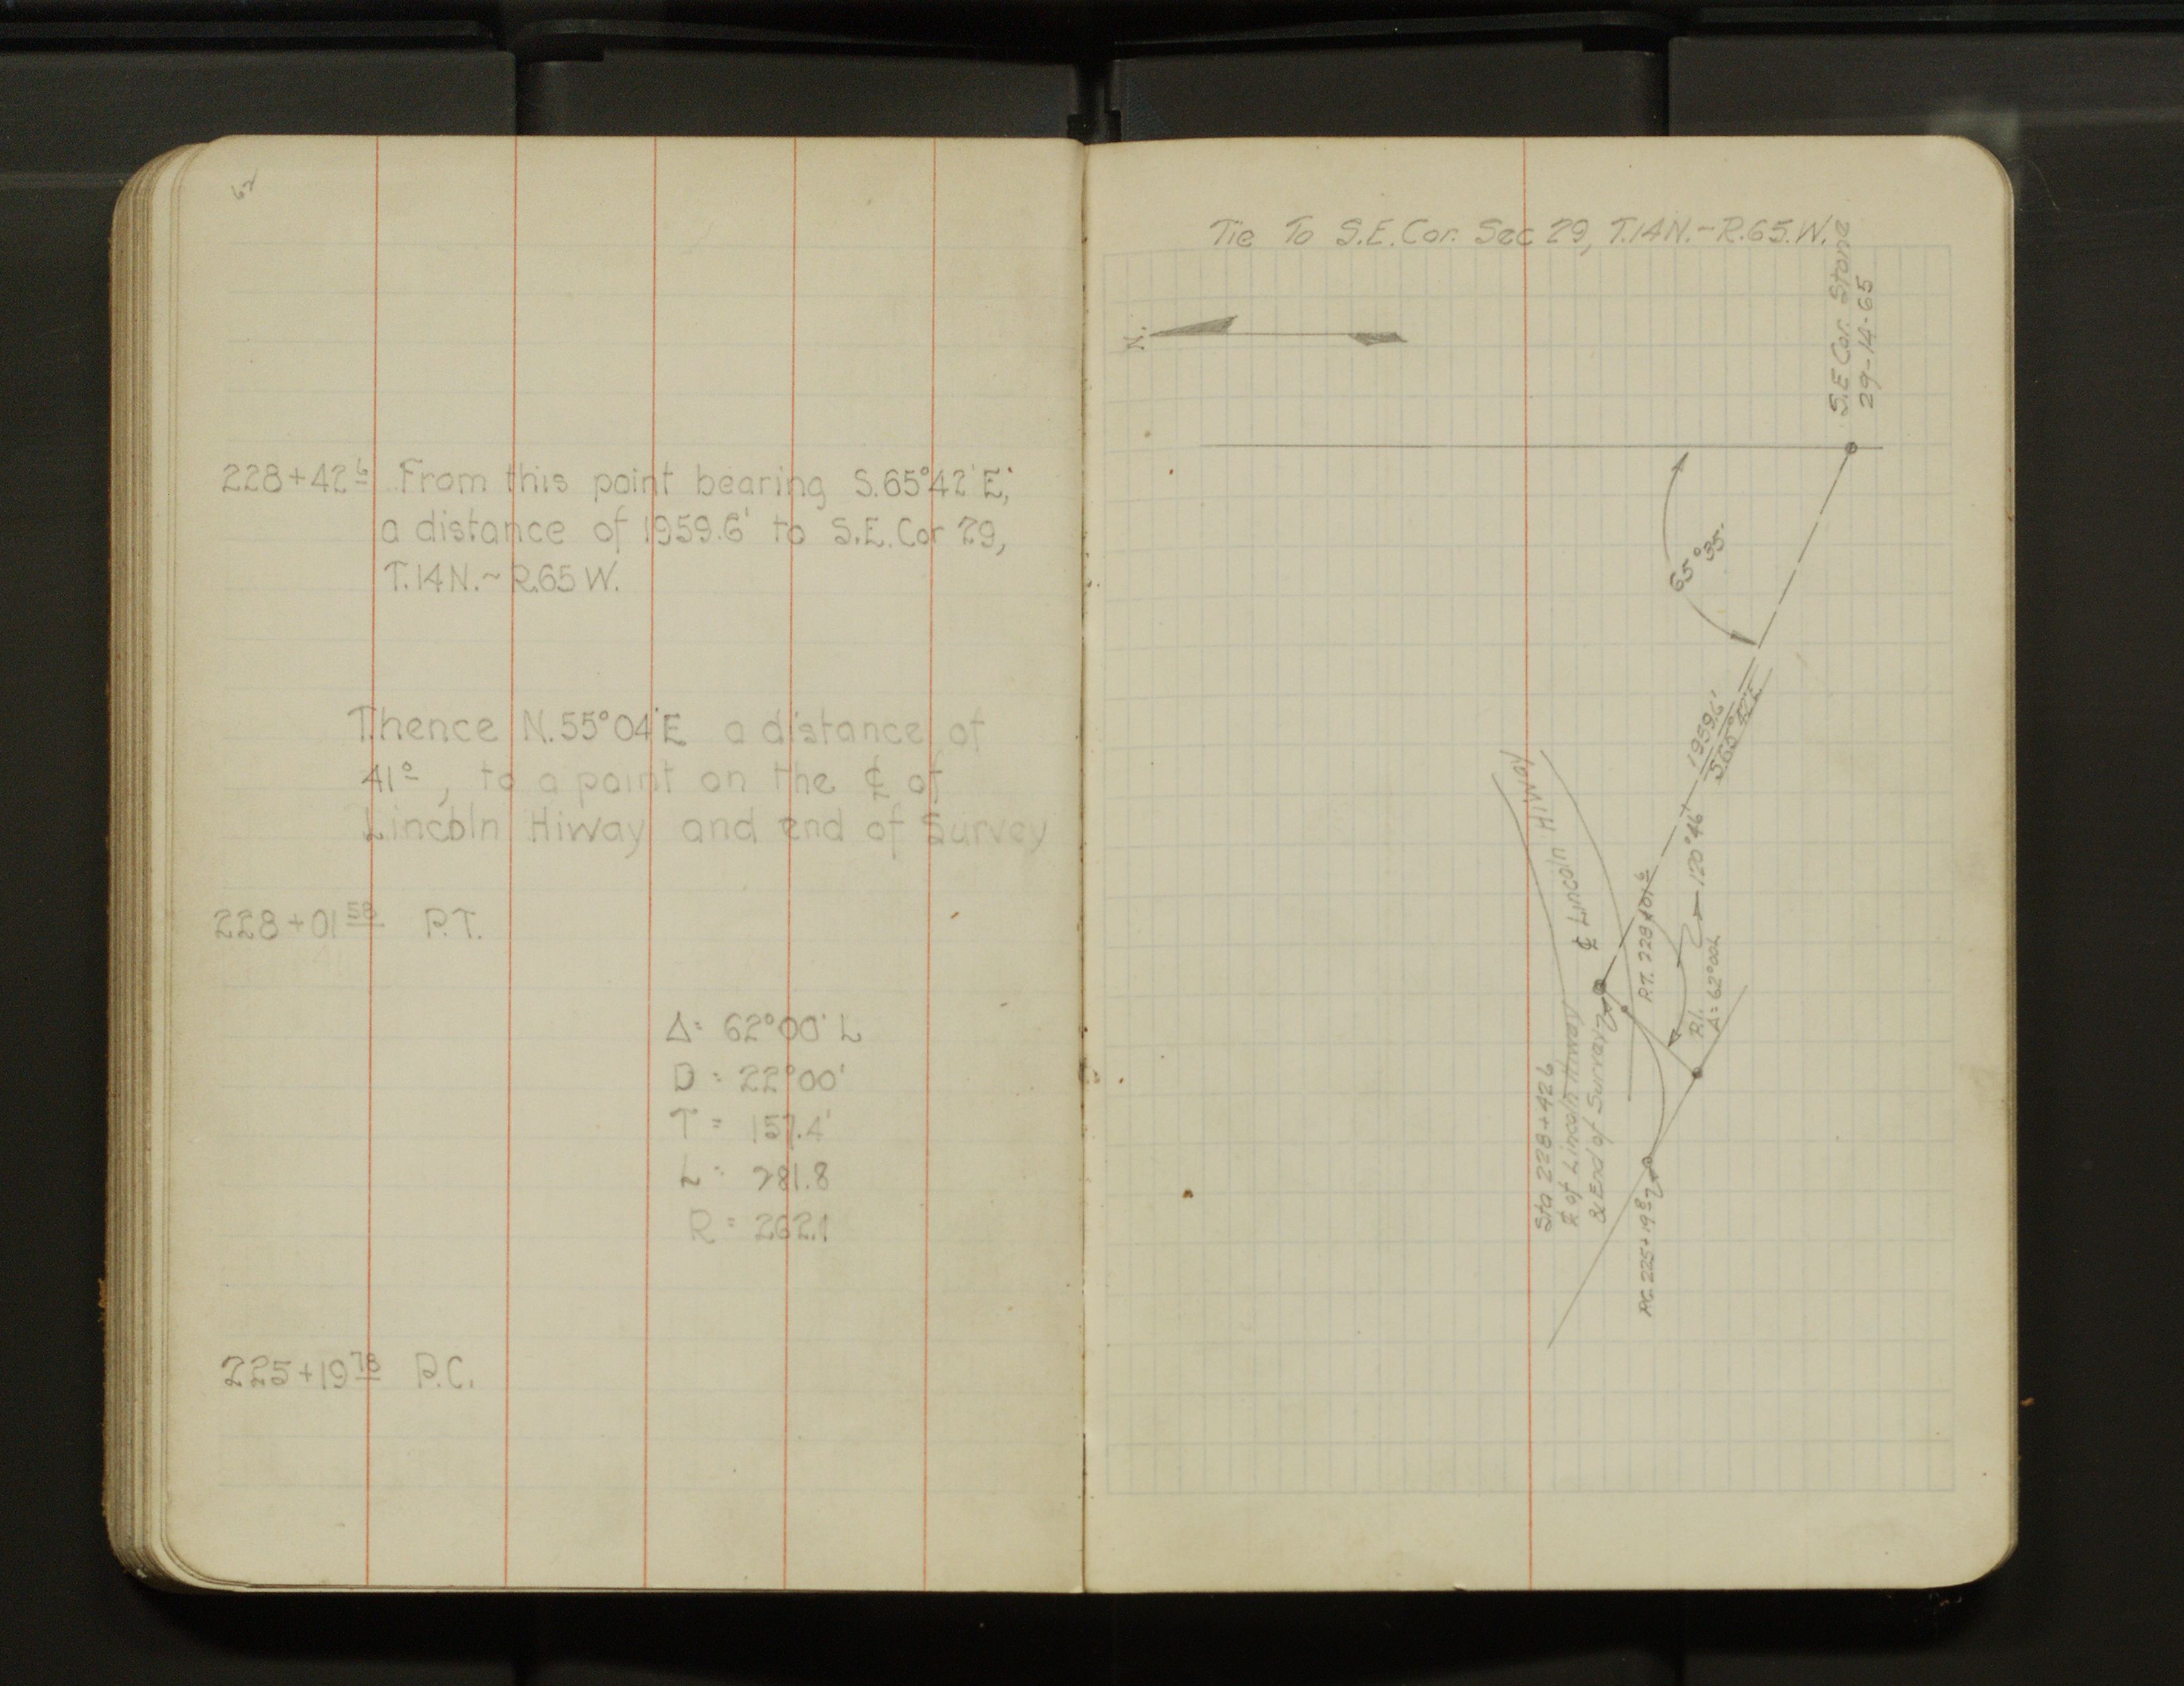 62
228+42⁶ From this point bearing S.65°42'E,
a distance of 1959.6' to S.E.Cor 29,
T.14N.~R.65W.
Thence N.55°04'E a distance of
41⁰, to a point on the ℄ of
Lincoln Hiway and end of Survey
228+01⁵⁸ P.T.
Δ= 62°00' L
D = 22°00'
T = 157.4'
L = 281.8
R = 262.1
225+19⁷⁸ P.C.
Tie To S.E.Cor. Sec 29, T.14N.-R.65.W.
N.
S.E Cor. Stone
29-14-65
65°35'
1959.6'
120°46'
℄ Lincoln HiWay
P.T. 228+01⁶
P.I.
Δ=62°00L
Sta 228+42⁶
℄ of Lincoln Hiway
& End of Survey
P.C. 225+19⁸